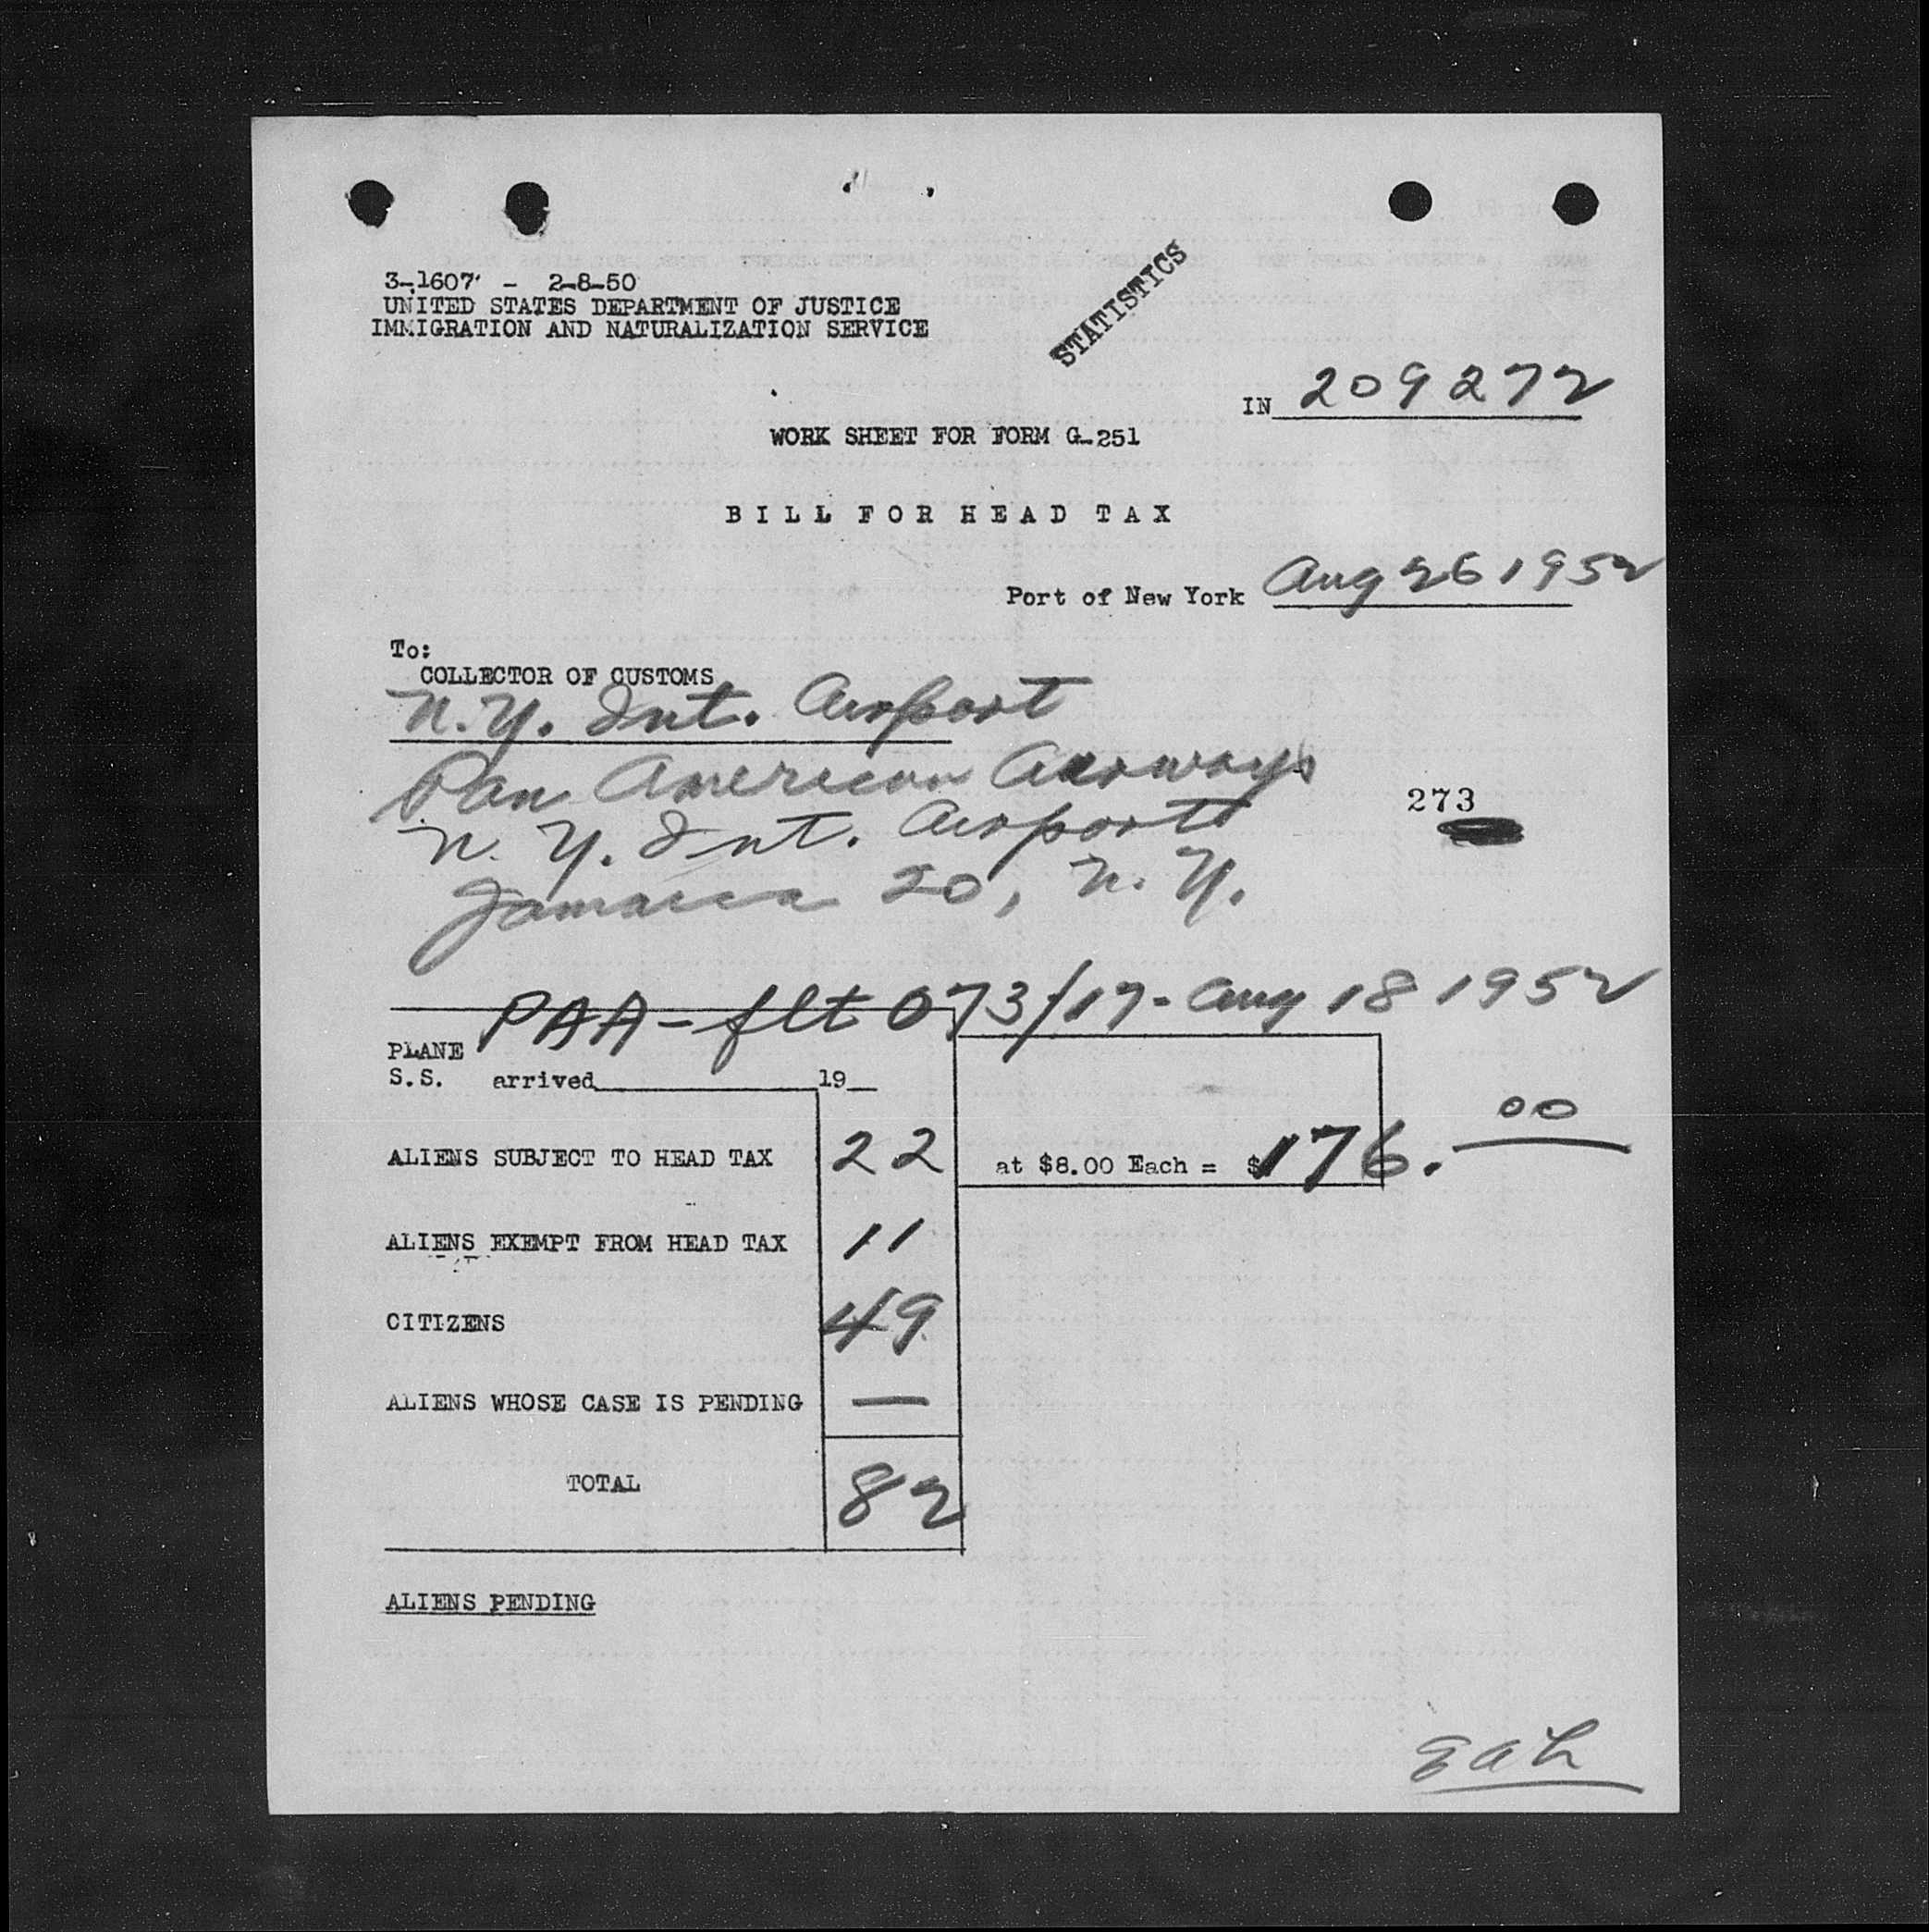 3-1607 - 2-8-50
UNITED STATES DEPARTMENT OF JUSTICE
IMMIGRATION AND NATURALIZATION SERVICE
STATISTICS
IN 209272
WORK SHEET FOR FORM G-251
BILL FOR HEAD TAX
Port of New York Aug 26 1952
To:
COLLECTOR OF CUSTOMS
N.Y. Int. Airport
Pan American Airways
273
N.Y. Int. Airport
Jamaica 20, N.Y.
PAA - flt 073/17 - Aug 18 1952
PLANE
S.S. arrived 19
ALIENS SUBJECT TO HEAD TAX 22 at $8.00 Each = $176.00
ALIENS EXEMPT FROM HEAD TAX 11
CITIZENS 49
ALIENS WHOSE CASE IS PENDING —
TOTAL 82
ALIENS PENDING